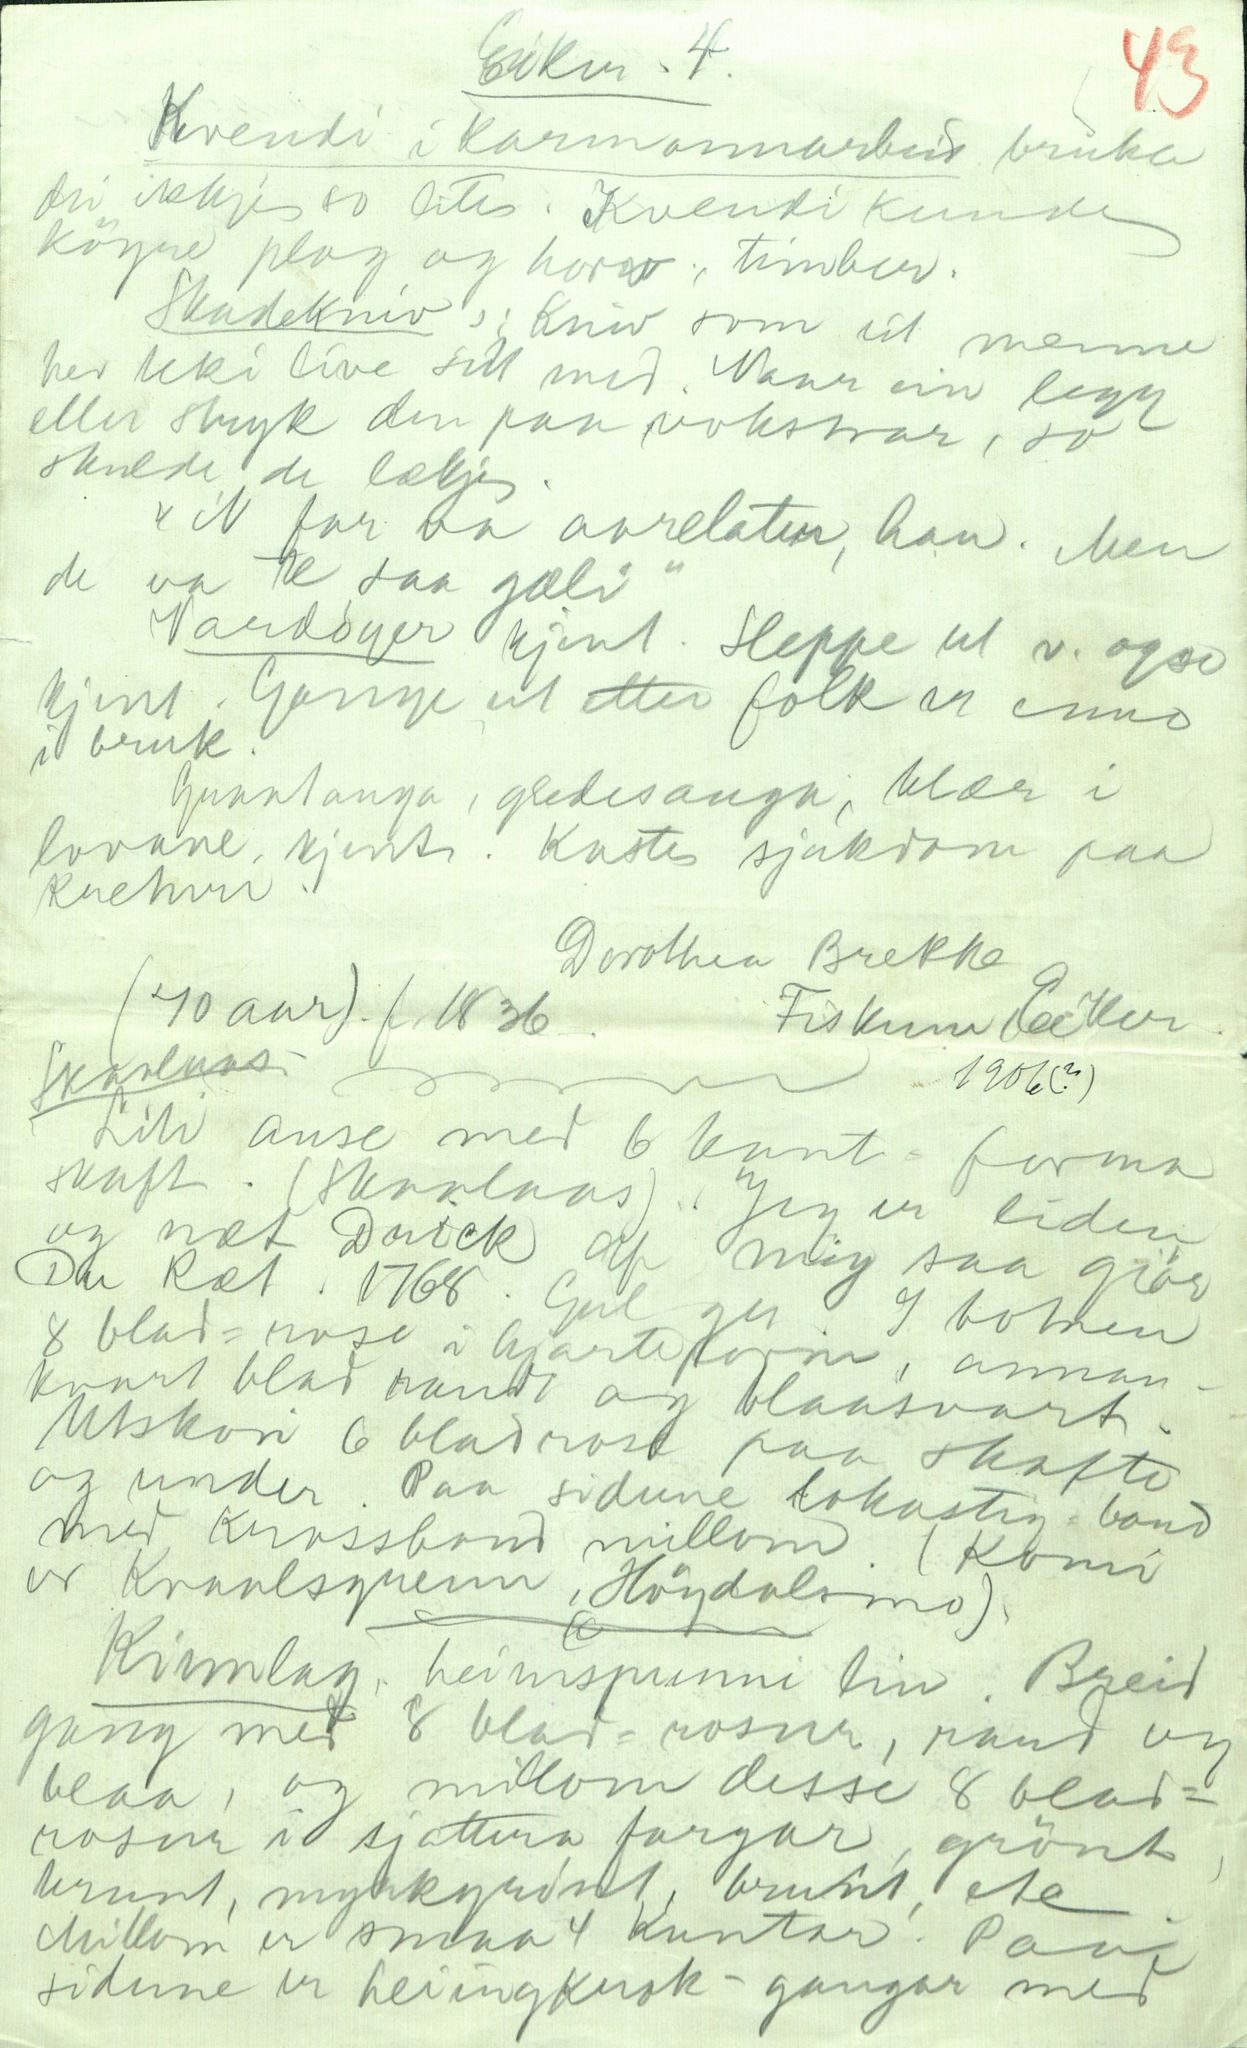 Eiker. 4.
43
Kvendi i karmannarbeid bruka
dei ikkje so lite. Kvendi kunde
köyre plog og horv, timber.
Skadekniv, Kniv som eit menne
hev teki live sitt med. Naar ein legg
eller stryk den paa vokstrar, so
skulde de lækje.
"N far va aarelater, han. Men
de va 'kje saa gæli"
Vardöger kjent. Sleppe ut v. ogso
kjent. Gange ut etter folk er enno
i bruk.
Graataauga, gledesauga, klær i
lovane, kjent. Kaste sjukdom paa
kretturi.
Dorothea Brekke
(70 aar). f. 1836. Fiskum Eiker.
1906(?)
Skaalaas
Liti ause med 6 kant-forma
skaft. (Skaalaas). Jeg er liden
og næt Drick af mig saa giör
Du Ret. 1768. I botnen
8 blad-rose i hjarteform, annan-
kvart blad raudt og blaasvart.
Utskori 6 bladrose paa skafte
og under. Paa sidune tokasting-band
med krossband millom. (Komi
or Kravlsgrenn, Höydalsmo).
Kinnlag, heimspunni lin. Breid
gang med 8 blad-rosur, raud og
blaa, og millom desse 8 blad-
rosur i sjatterа fargar, grönt,
brunt, myrkgrönt, brunt, etc
Millom er smaa 4 kantar. Paa
sidune er heiingkrok-gangar med